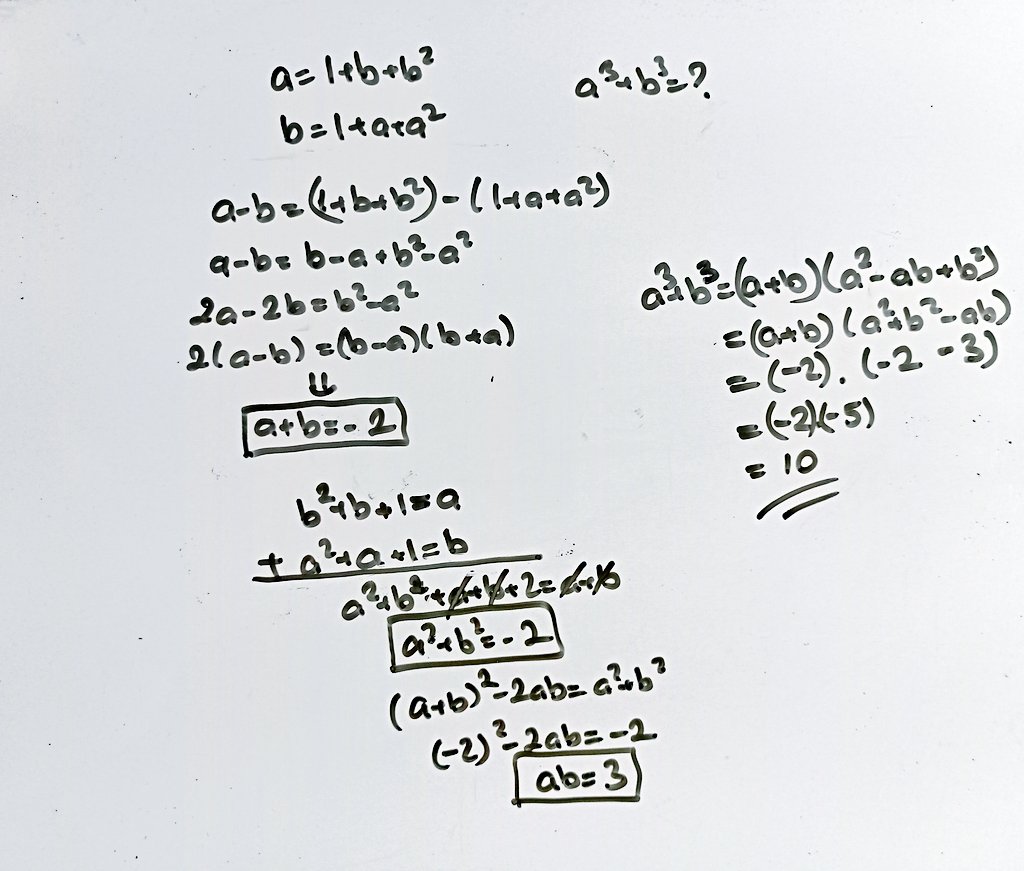 a=1+b+b²
b=1+a+a²
a³+b³=?
a-b=(1+b+b²)-(1+a+a²)
a-b=b-a+b²-a²
2a-2b=b²-a²
2(a-b)=(b-a)(b+a)
⇓
a+b=-2
b²+b+1=a
+ a²+a+1=b
a²+b²+a+b+2=a+b
a²+b²=-2
(a+b)²-2ab=a²+b²
(-2)²-2ab=-2
ab=3
a³+b³=(a+b)(a²-ab+b²)
=(a+b)(a²+b²-ab)
=(-2).(-2-3)
=(-2)(-5)
=10